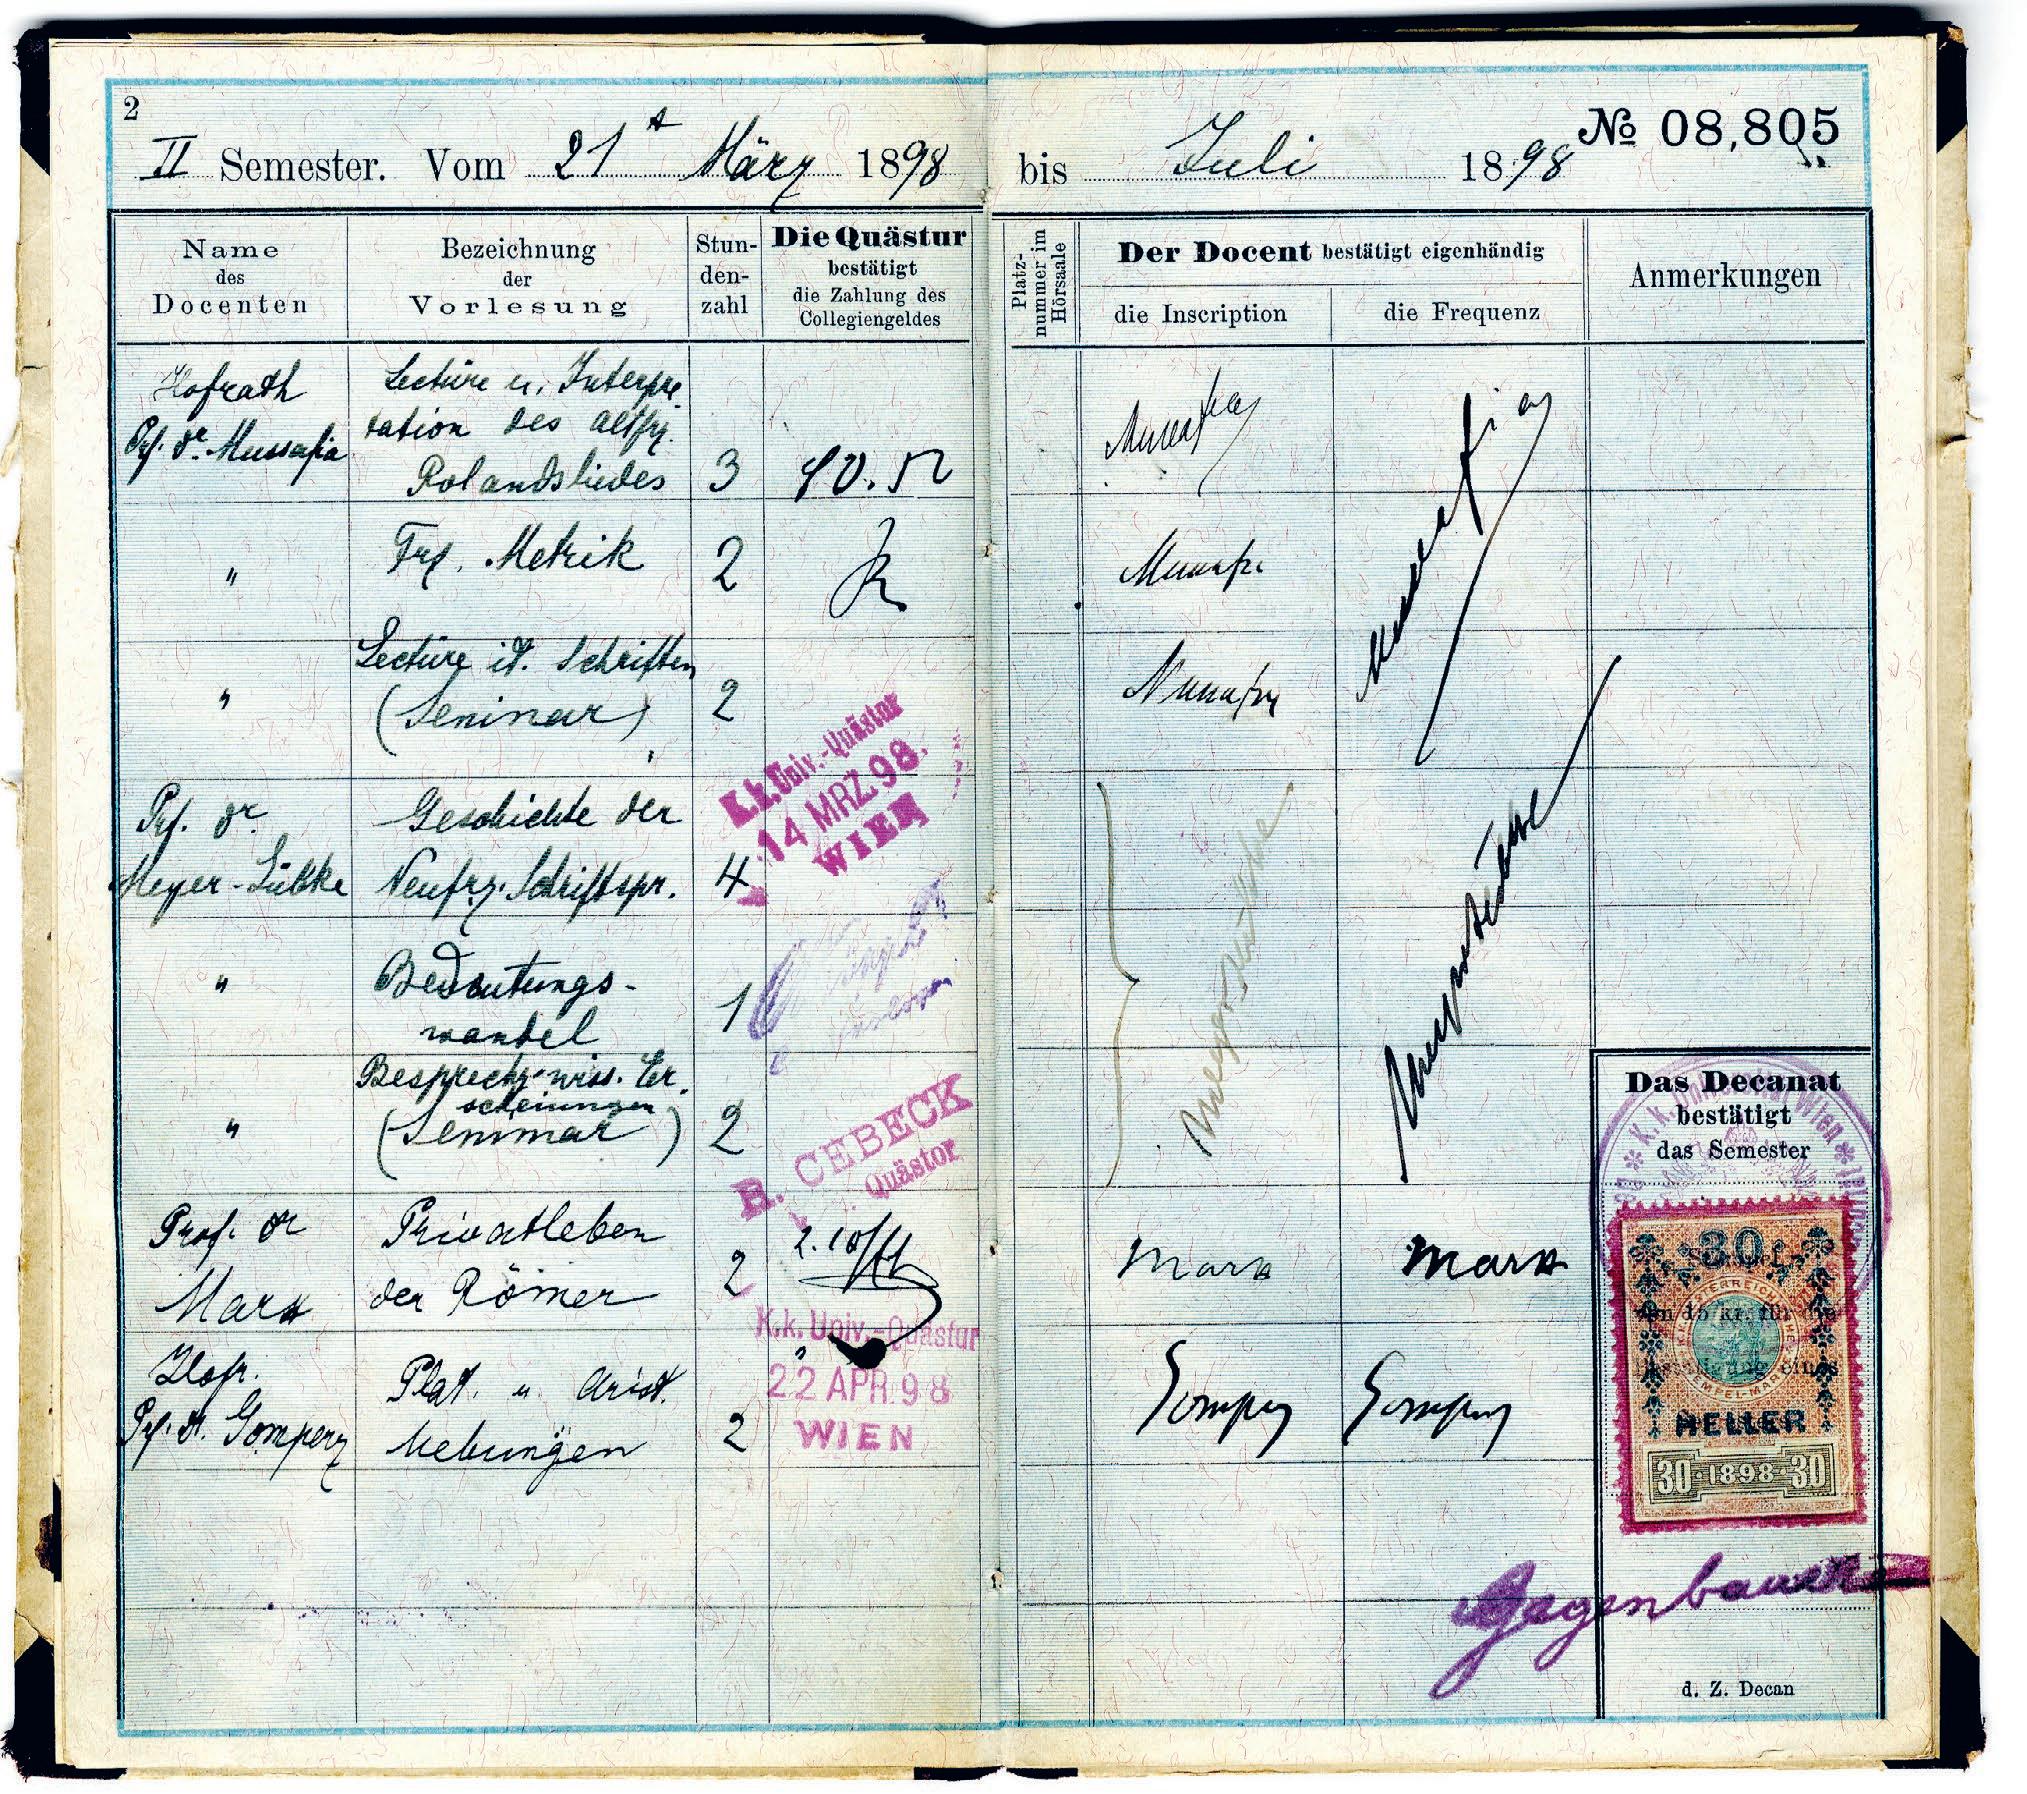 2
II Semester. Vom 21t März 1898
Name
des
Docenten
Bezeichnung
der
Vorlesung
Stun-
den-
zahl
Die Quästur
bestätigt
die Zahlung des
Collegiengeldes
Hofrath
Prf. Dr. Mussafia
Lectüre u. Interpre
tation des altfrz.
Rolandsliedes
3
" Frz. Metrik 2
" Lectüre it. Schriften
(Seminar) 2
K.k. Univ.-Quästur
14 MRZ. 98.
WIEN
Prf. Dr.
Meyer-Lübke
Geschichte der
Neufrz. Schriftspr.
4
" Bedeutungs-
wandel 1
" Besprechg. wiss. Er-
scheinungen
(Seminar) 2
R. CEBECK
Quästor
Prof. Dr
Marx
Privatleben
der Römer
2
2.10
K.k. Univ.-Quästur
22 APR. 98
WIEN
Hofr.
Prf. Dr. Gomperz
Plat. u. Arist.
Uebungen
2
No 08,805
bis Juli 1898
Platz-
nummer im
Hörsaale
Der Docent bestätigt eigenhändig
die Inscription
die Frequenz
Anmerkungen
Mussafia
Mussafia
Mussafia
Mussafia
Meyer-Lübke
Meyer-Lübke
Marx Marx
Gomperz Gomperz
Das Decanat
bestätigt
das Semester
30
HELLER
30 1898 30
Gegenbauer
d. Z. Decan